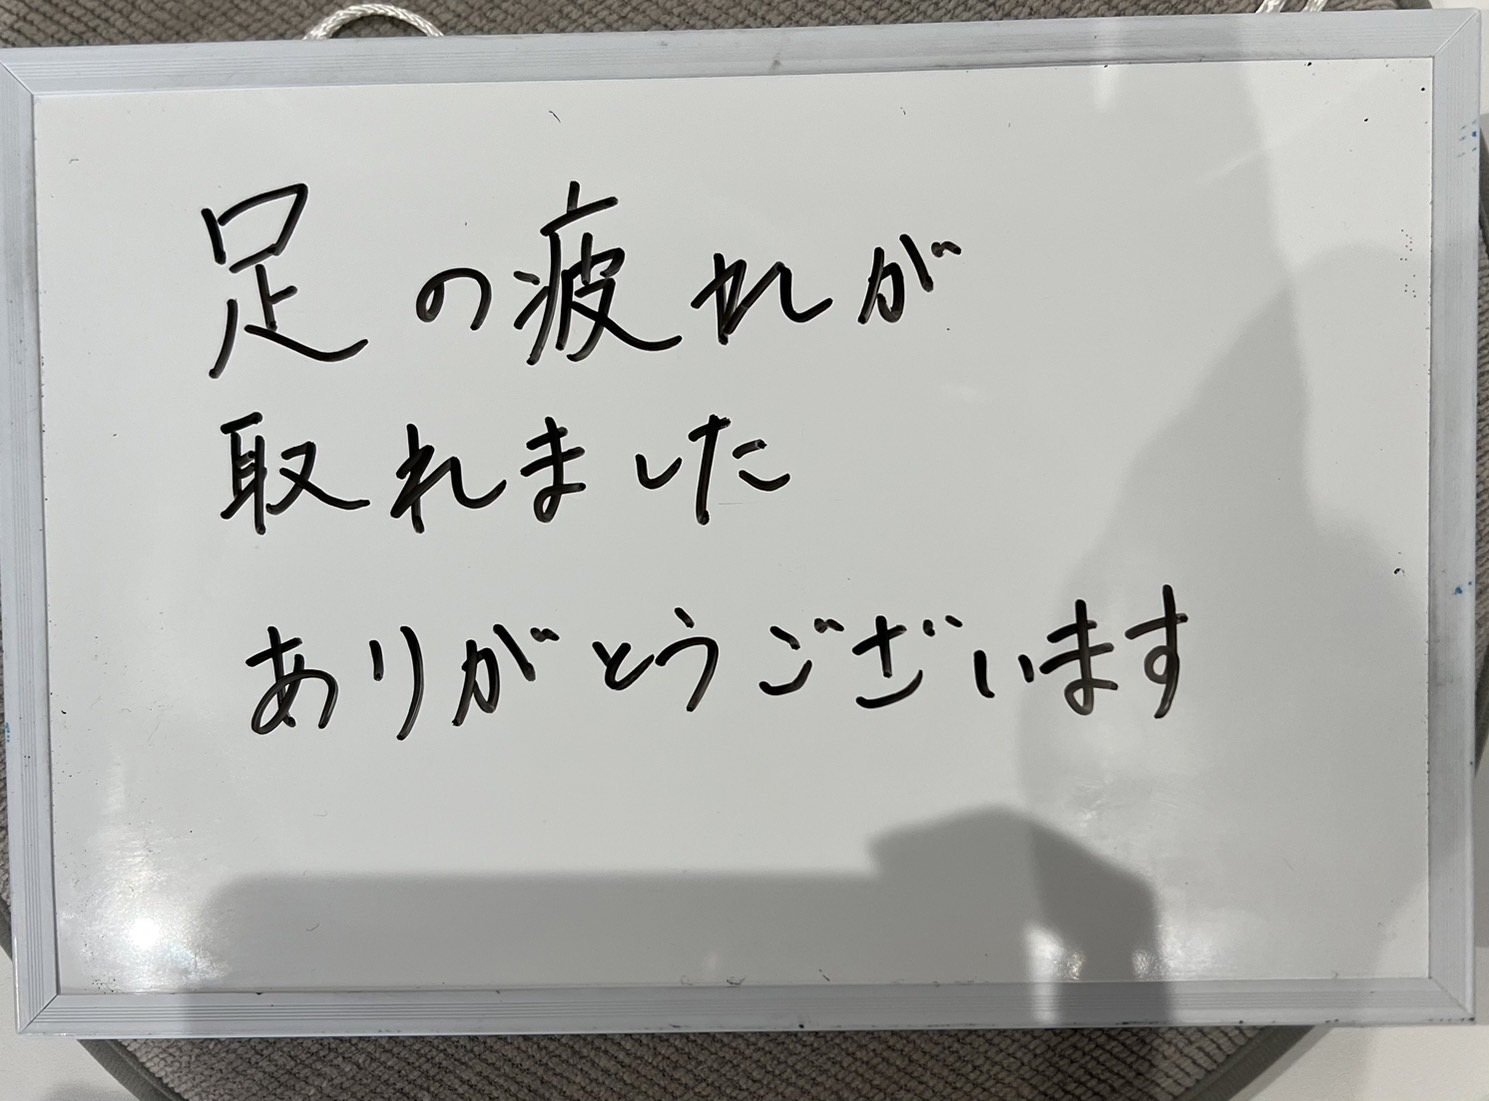 足の疲れが
取れました
ありがとうございます